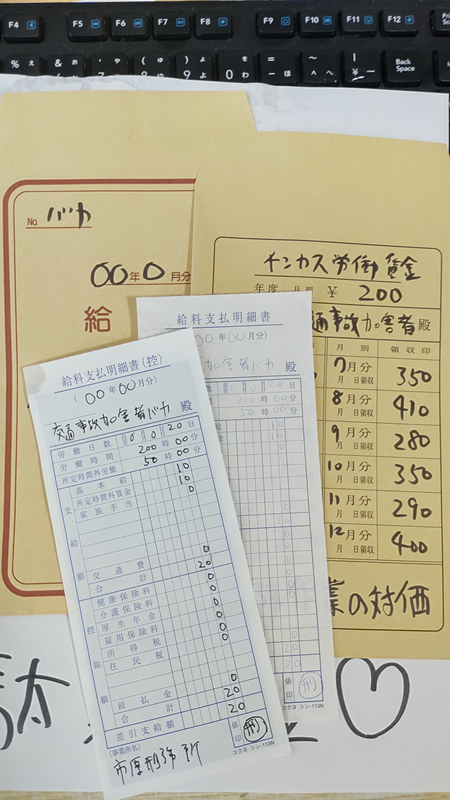 F4 F5 F6 F7 F8 F9 F10 F11 F12
Back
Space
No. バカ
00年0月分
給
チンカス労働賃金
年度 月 ¥ 200
通事故加害者殿
月別 領収印
7月分
月 日領収 350
8月分
月 日領収 410
9月分
月 日領収 280
10月分
月 日領収 350
11月分
月 日領収 290
12月分
月 日領収 400
業の対価
給料支払明細書
(00年00月分)
殿
コクヨ シン-113N
給料支払明細書(控)
(00年00月分)
交通事故加害者バカ 殿
労働日数 0 0 20日
労働時間 200時00分
所定時間外労働 50時00分
基本給 10
所定時間外賃金 10
家族手当 0
支給額
交通費 0
合計 20
健康保険料 0
介護保険料 0
厚生年金 0
雇用保険料 0
所得税 0
住民税 0
控除額
前払金 0
合計 20
差引支給額 20
係印 刑
(事業所名)
市原刑務所
コクヨ シン-113N
♡